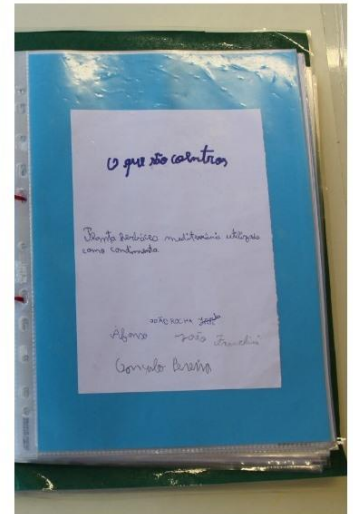 O que são coentros
Planta herbácea mediterrânia utilizada
como condimento
Afonso João
Gonçalo Pereira